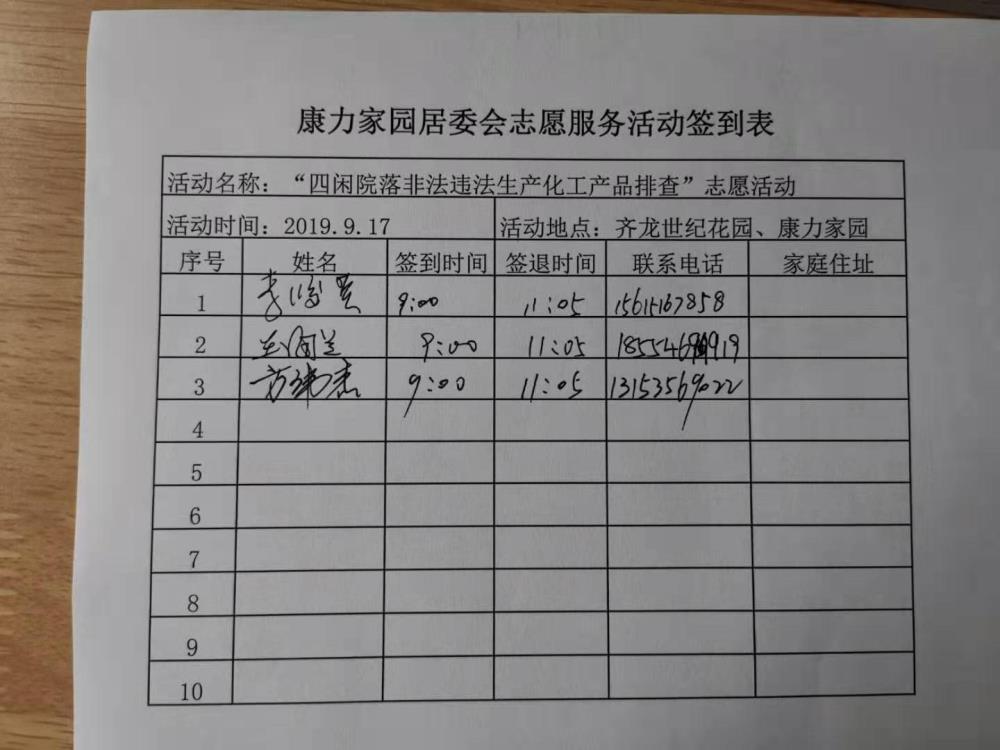 康力家园居委会志愿服务活动签到表
活动名称：“四闲院落非法违法生产化工产品排查”志愿活动
活动时间：2019.9.17 活动地点：齐龙世纪花园、康力家园
序号 姓名 签到时间 签退时间 联系电话 家庭住址
1 9:00 11:05 15615167858
2 9:00 11:05
3 9:00 11:05 13153569022
4
5
6
7
8
9
10